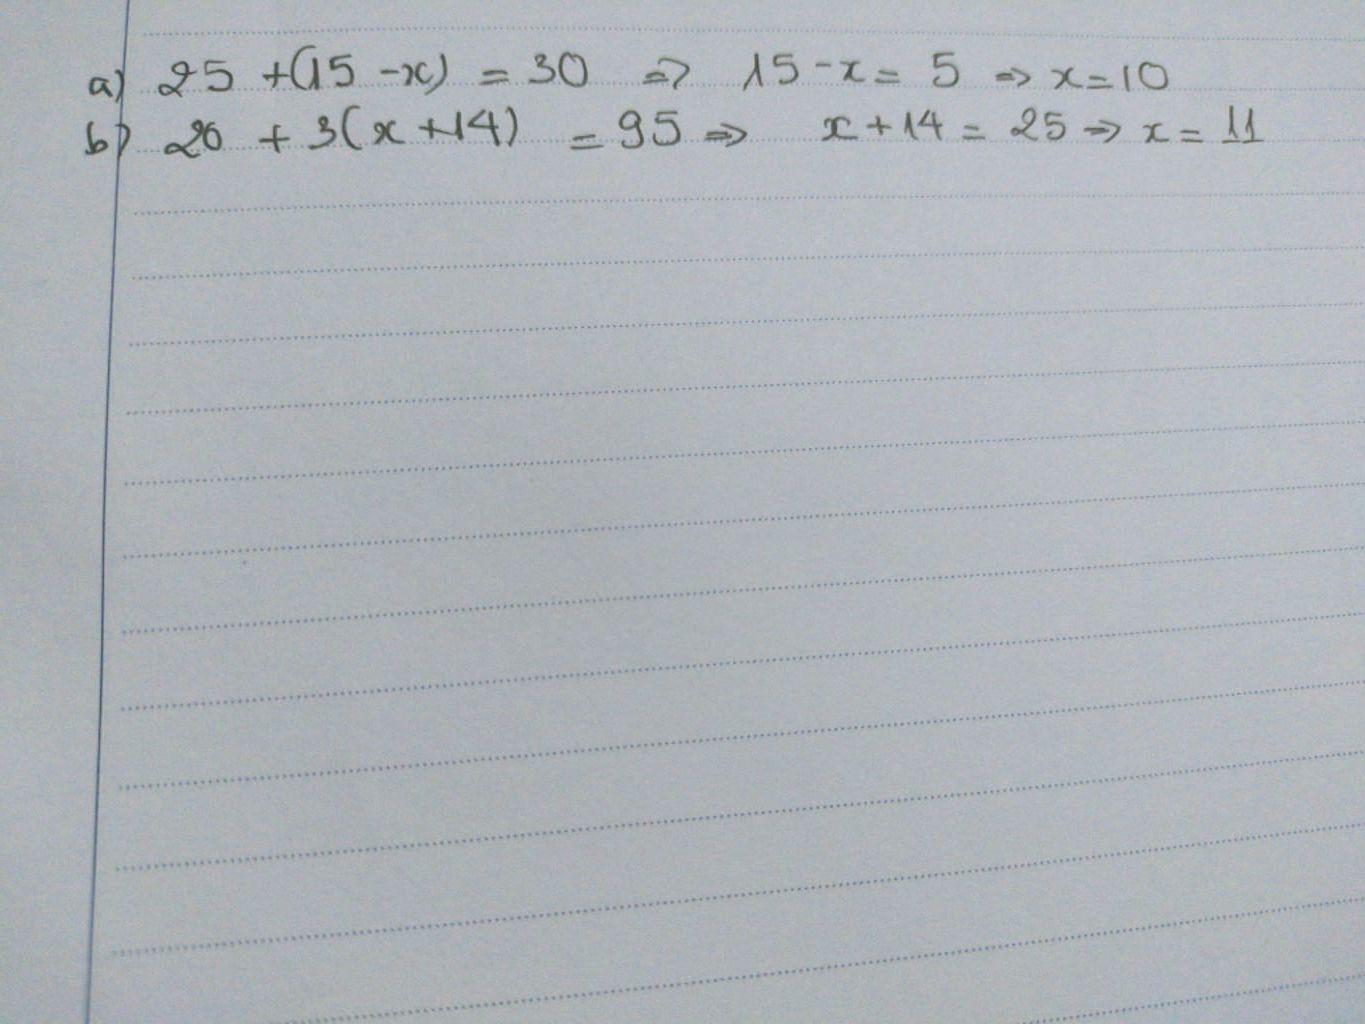 a) 25 + (15 - x) = 30 => 15 - x = 5 => x = 10
b) 20 + 3(x + 14) = 95 => x + 14 = 25 => x = 11